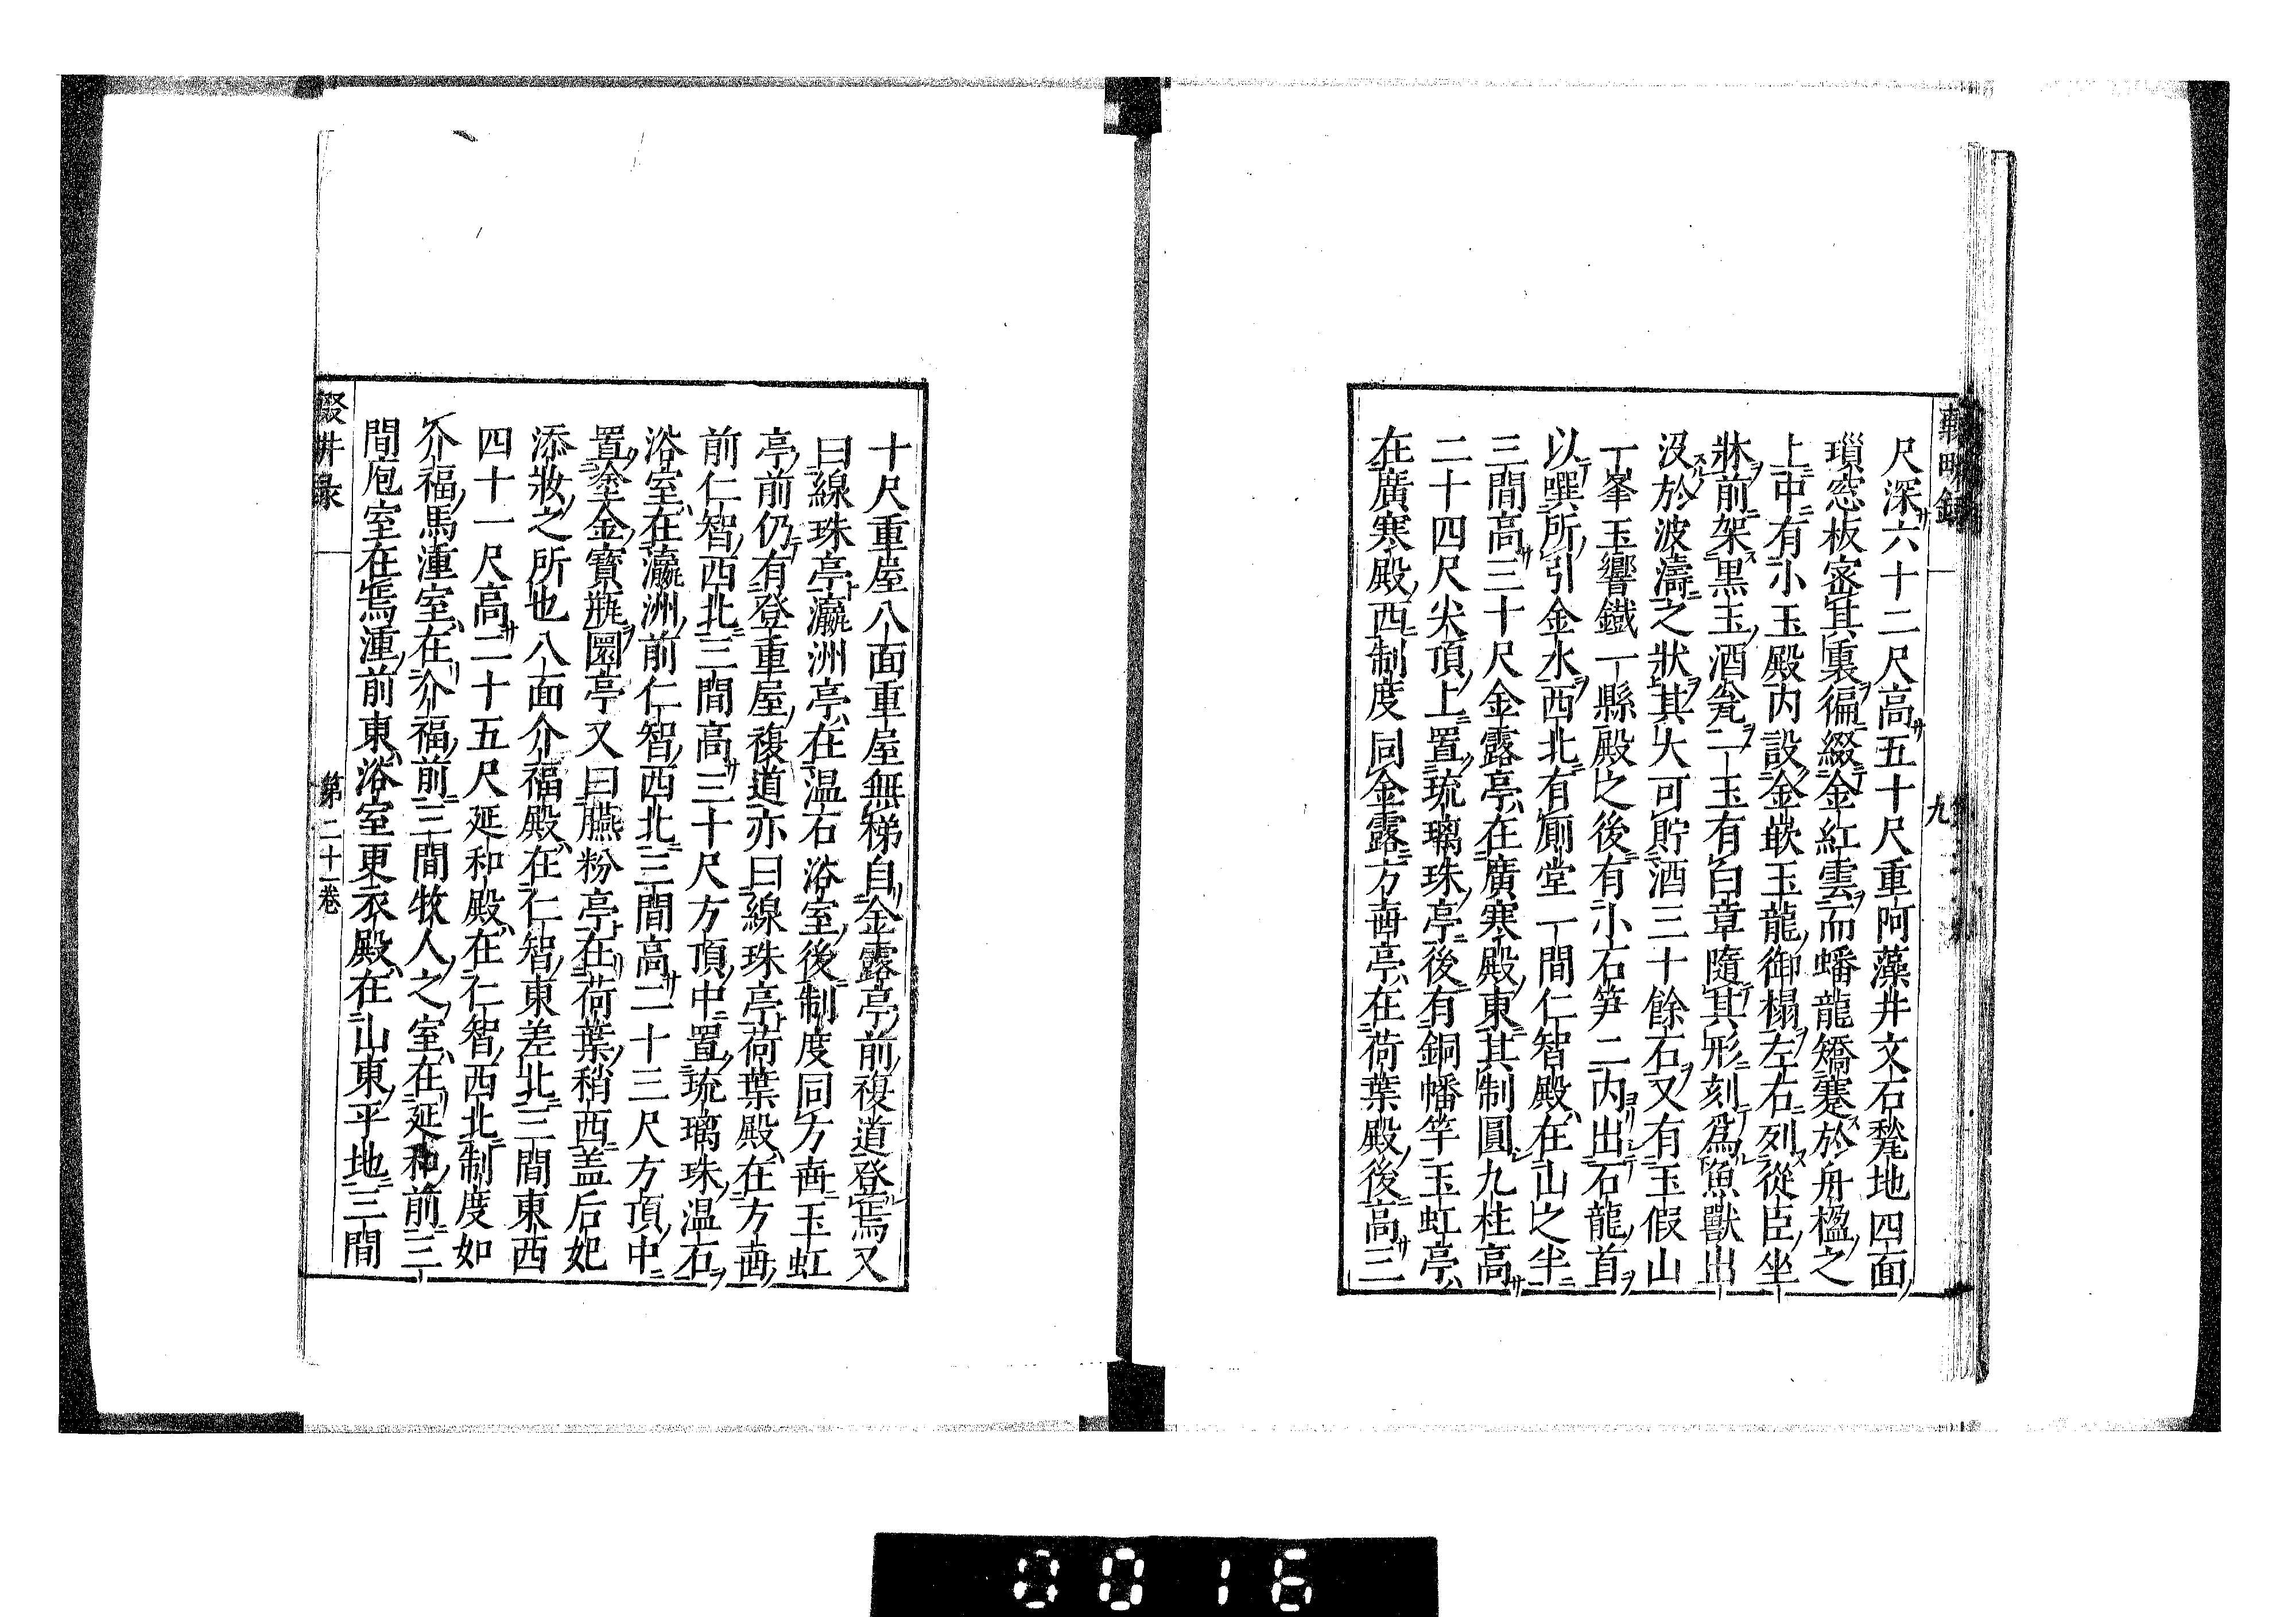 尺深六十二尺高五十尺重阿藻井文石甃地四面
瑣窓板宻其裏徧綴金紅雲而蟠龍矯蹇於舟楹之
上中有小玉殿内設金嵌玉龍御榻左右列從臣坐
牀前架黒玉酒瓮一玉有白章隨其形刻爲魚獸出
没於波濤之狀其大可貯酒三十餘石又有玉假山
一峯玉響鐵一縣殿之後有小石笋二内出石龍首
以噀所引金水西北有厠堂一間仁智殿在山之半
三間高三十尺金露亭在廣寒殿東其制圓九柱高
二十四尺尖頂上置琉璃珠亭後有銅幡竿玉虹亭
在廣寒殿西制度同金露方壷亭在荷葉殿後高三
十尺重屋八面重屋無梯自金露亭前複道登焉又
曰線珠亭瀛洲亭在温石浴室後制度同方壷玉虹
亭前仍有登重屋複道亦曰線珠亭荷葉殿在方壷
前仁智西北三間高三十尺方頂中置琉璃珠温石
浴室在瀛洲前仁智西北三間高二十三尺方頂中
置塗金寳瓶圜亭又曰臙粉亭在荷葉稍西盖后妃
添妝之所也八面介福殿在仁智東差北三間東西
四十一尺高二十五尺延和殿在仁智西北制度如
介福馬湩室在介福前三間牧人之室在延和前三
間庖室在焉湩前東浴室更衣殿在山東平地三間
輟畊録
第二十一巻
九